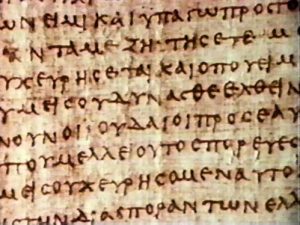 ΩΝΕΙΜΙΚΑΙΫΠΑΓΩΠΡΟϹΤΟ
ΑΝΤΑΜΕΖΗΤΗϹΕΤΕΜ
ΥΧΕΥΡΗϹΕΤΑΙΚΑΙΟΠΟΥΕΙΜ
ΥΜΕΙϹΟΥΔΥΝΑϹΘΕΕΛΘΕΙΝ
ΝΟΥΝΟΙΪΟΥΔΑΙΟΙΠΡΟϹΕΑΥ
ΠΟΥΜΕΛΛΕΙΟΥΤΟϹΠΟΡΕΥΕϹ
ΜΕΙϹΟΥΧΕΥΡΗϹΟΜΕΝΑΥΤΟ
ΙϹΤΗΝΔΙΑϹΠΟΡΑΝΤΩΝΕΛΛ